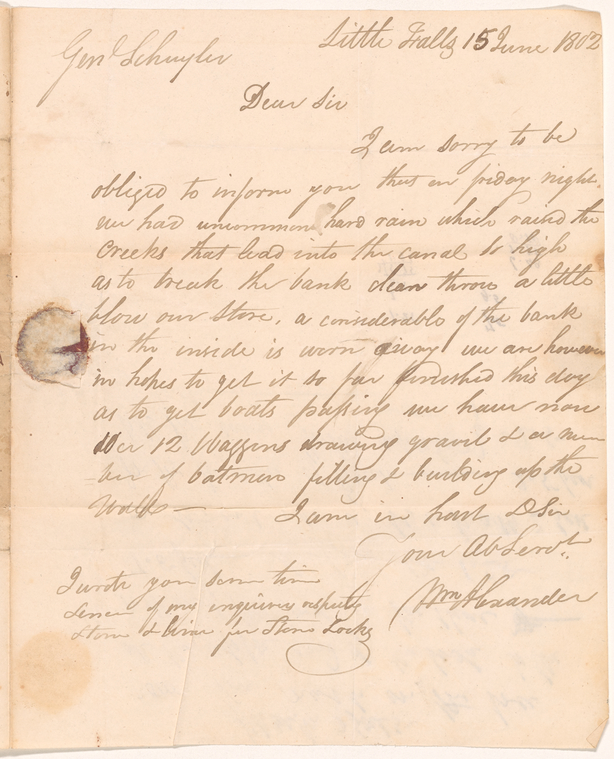 Little Falls 15 June 1802
Genl Schuyler
Dear Sir
I am sorry to be
obliged to inform you that on friday night
we had uncommon hard rain which raised the
Creeks that lead into the canal so high
as to break the bank clean throu a little
blow our Store, a considerable of the bank
in the inside is worn away we are however
in hopes to get it so far finished this day
as to get boats passing we have now
10 or 12 Waggins drawing gravil & a num
ber of batmen filling & building up the
Walls —
I am in hast D Sir
Your Ob Servt.
Wm Alexander
I wrote you some time
sence of my enquiries respecting
stone & lime for Stone Locks